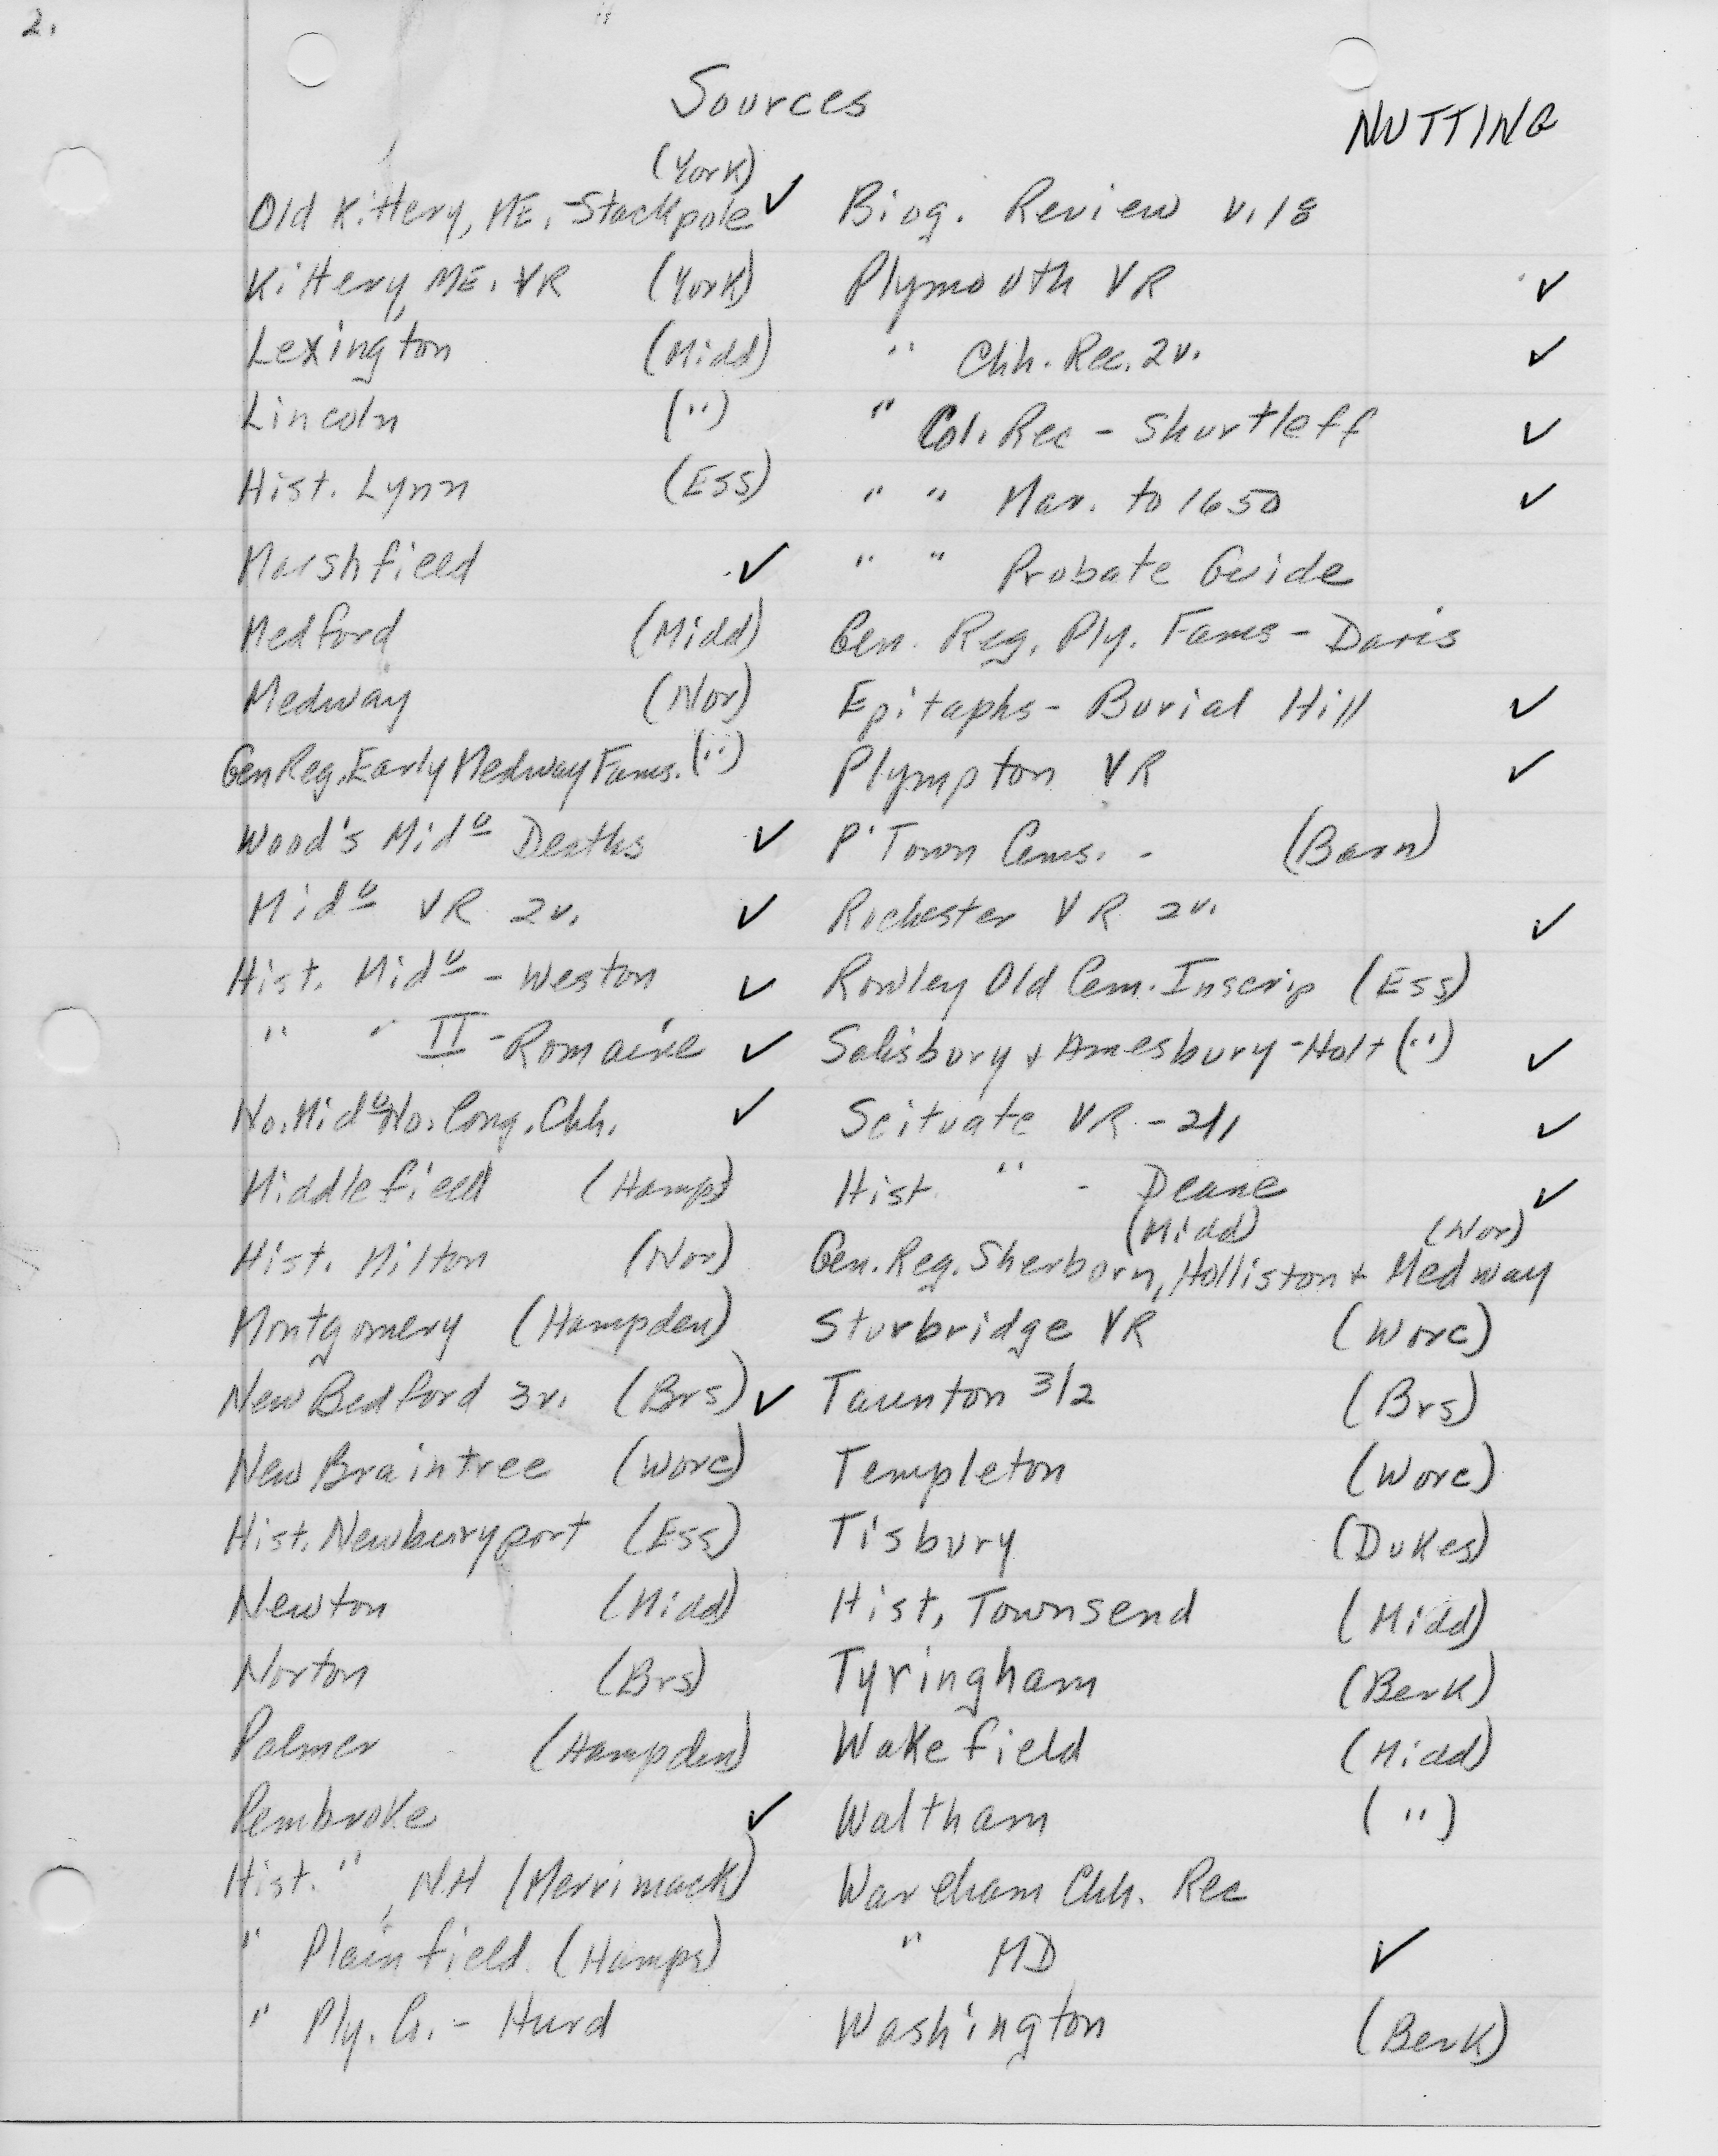 2.
Sources
NUTTING
(York)
Old Kittery, ME. - Stackpole ✓
Kittery, ME. VR (York)
Lexington (Midd)
Lincoln (")
Hist. Lynn (Ess)
Marshfield ✓
Medford (Midd)
Medway (Nor)
Gen Reg. Early Medway Fams. (")
Wood's Mid° Deaths ✓
Mid° VR 2v. ✓
Hist. Mid° - Weston ✓
" " II - Romaine ✓
No. Mid° No. Cong. Chh. ✓
Middlefield (Hamps)
Hist. Milton (Nor)
Montgomery (Hampden)
New Bedford 3v. (Brs) ✓
New Braintree (Worc)
Hist. Newburyport (Ess)
Newton (Midd)
Norton (Brs)
Palmer (Hampden)
Pembroke ✓
Hist. ", NH (Merrimack)
" Plainfield (Hamps)
" Ply. Co. - Hurd
Biog. Review v. 18
Plymouth VR ✓
" Chh. Rec. 2v. ✓
" Col. Rec - Shurtleff ✓
" " Mar. to 1650 ✓
" " Probate Guide
Gen. Reg. Ply. Fams - Davis
Epitaphs - Burial Hill ✓
Plympton VR ✓
P'Town Cems. - (Barn)
Rochester VR 2v. ✓
Rowley Old Cem. Inscrip (Ess)
Salisbury + Amesbury - Hoyt (") ✓
Scituate VR - 2/1 ✓
Hist " - Deane ✓
(Midd) (Nor)
Gen. Reg. Sherborn, Holliston + Medway
Sturbridge VR (Worc)
Taunton 3/2 (Brs)
Templeton (Worc)
Tisbury (Dukes)
Hist, Townsend (Midd)
Tyringham (Berk)
Wakefield (Midd)
Waltham (")
Wareham Chh. Rec
" MD ✓
Washington (Berk)